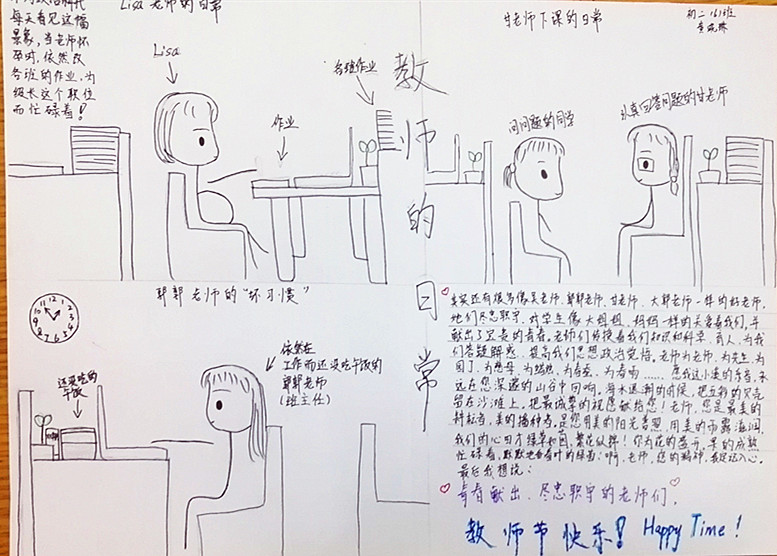 Lisa 老师的日常
每天看见这幅
景象，当老师怀
孕时，依然改
各班的作业，为
级长这个职位
而忙碌着！
Lisa
作业
各班作业
教师的日常
甘老师下课的日常
初二1616班
问问题的同学
认真回答问题的甘老师
郭郭老师的“坏习惯”
12
还没吃的
午饭
依然在
工作而还没吃午饭的
郭郭老师
(班主任)
其实还有很多像吴老师、郭郭老师、甘老师、大郭老师一样的好老师，
她们尽忠职守，对学生像大姐姐、妈妈一样的关爱着我们，并
献出了宝贵的青春。老师们传授着我们知识和科学、育人，为我
们答疑解惑，提高我们思想政治觉悟，老师为老师，为先生，为
园丁，为慈母，为蜡烛，为春蚕，为春雨……
远在您深邃的山谷中回响。海水退潮的时候，把五彩的贝壳
留在沙滩上，把最诚挚的祝愿献给您！老师，您是最美的
耕耘者，美的播种者，是您用美的阳光普照，用美的雨露滋润，
我们的心田才绿草如茵，繁花似锦！你为花的盛开，果的成熟
忙碌着，默默地 着叶的绿荫；啊，老师，您的精神，永
最后我想说：
青春献出、尽忠职守的老师们，
教师节快乐！ Happy Time！